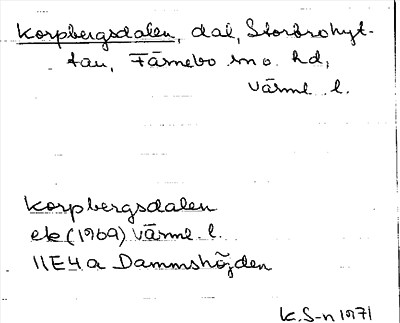 Korpbergsdalen, dal, Storbrohyt-
tan, Färnebo sn o. hd,
Värml. l.
Korpbergsdalen
ek (1969) Värml. l.
11E4a Dammshöjden
K.S-n 1971